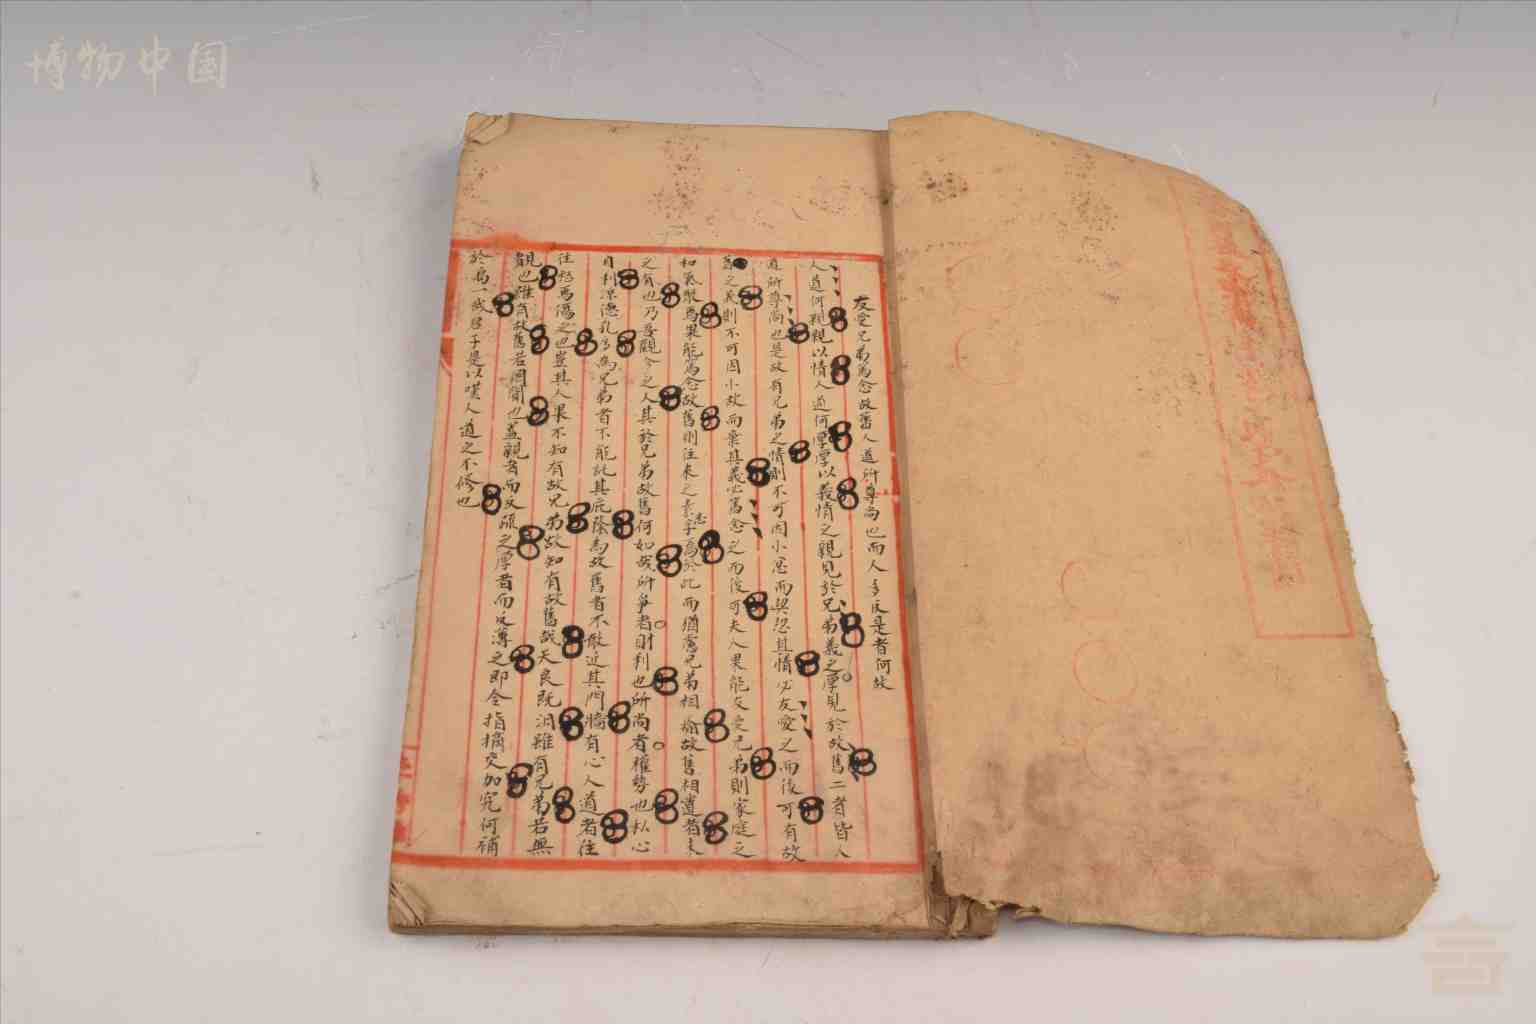 博物中国
友愛兄弟篤念故舊人道所尊尚也而人多反是者何故
人道何親親以情人道何厚厚以義情之親見於兄弟義之厚見於故舊二者皆人
道所尊尚也是故有兄弟之情則不可因小忿而契忽其情必友愛之而後可有故
舊之義則不可因小故而棄其義必篤念之而後可夫人果能友愛兄弟則家庭之
和氣聚焉果能篤念故舊則往來之素孚焉於此而猶慮兄弟相 故舊相遺者未
之有也乃吾觀今之人其於兄弟故舊何如哉所爭者財利也所尚者權勢也私心
自利 德 為兄弟者不能託其庇蔭為故舊者不敢近其門牆有心人道者往
往 焉傷之也豈其人果不知有故兄弟故知有故舊哉天良既汩雖有兄弟若無
覩也雖有故舊若罔聞也蓋親者而反疏之厚者而反薄之即令指摘交加究何補
於為一哉君子是以嘆人道之不修也